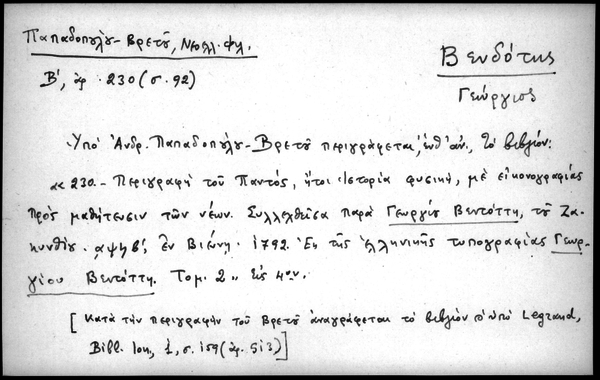 Παπαδοπούλου-Βρετοῦ, Νεοελλ. Φιλ.
Β', ἀρ. 230 (σ. 92)
Βενδότης
Γεώργιος
Ὑπὸ Ἀνδρ. Παπαδοπούλου-Βρετοῦ περιγράφεται, ἐνθ' ἀν., τὸ βιβλίον:
« 230.- Περιγραφὴ τοῦ Παντός, ἤτοι Ἱστορία φυσική, μὲ εἰκονογραφίας
πρὸς μαθήτευσιν τῶν νέων. Συλλεχθεῖσα παρὰ Γεωργίου Βεντόττη, τοῦ Ζα-
κυνθίου. αψϟβ', ἐν Βιέννῃ. 1792. Ἐκ τῆς ἑλληνικῆς τυπογραφίας Γεωρ-
γίου Βεντόττη. Τομ. 2 " Εἰς 4ον.
[Κατὰ τὴν περιγραφὴν τοῦ Βρετοῦ ἀναγράφεται τὸ βιβλίον ὑπὸ Legrand,
Bibl. Ion., 1, σ. 159 (ἀρ. 513)]